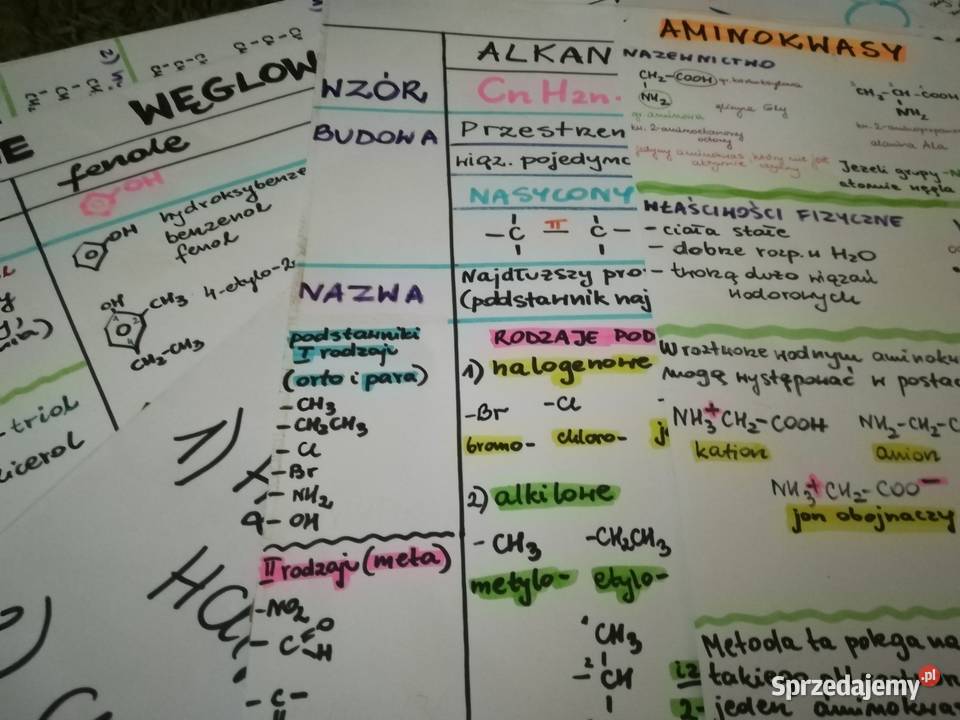 WĘGLOW
fenole
OH
OH
hydroksybenze
benzenol
fenol
OH
CH3
4-etylo-2
CH2-CH3
-triol
1)
HCl
podstawniki
I rodzaju
(orto i para)
-CH3
-CH2CH3
-Cl
-Br
-NH2
-OH
II rodzaju (meta)
-NO2
-C
O
H
-C-
ALKAN
WZÓR
CnH2n.
BUDOWA
Przestrzen
wiąz. pojedync
NASYCONY
-C-
C-
NAZWA
Najdłuższy
(podstawnik naj
RODZAJE POD
1) halogenowe
-Br
-Cl
bromo-
chloro-
j
2) alkilowe
-CH3
-CH2CH3
metylo-
etylo-
1CH3
2
-CH
AMINOKWASY
NAZEWNICTWO
CH2-COOH
NH2
gr. aminowa
glicyna Gly
kw. 2-aminoetanowy
CH3-CH-COOH
NH2
alanina Ala
Jeżeli grupy -N
atomie węgla
WŁAŚCIWOŚCI FIZYCZNE
- ciała stałe
- dobrze rozp. w H2O
- tworzą dużo wiązań
wodorowych
W roztworze wodnym aminokw
mogą występować w postac
NH3+CH2-COOH
NH2-CH2-C
kation
anion
NH3+CH2-COO-
jon obojnaczy
Metoda ta polega na
jeden aminokwa
Sprzedajemy.pl